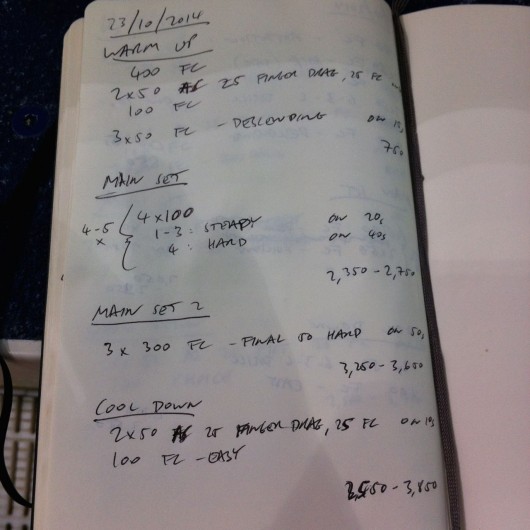 23/10/2014
WARM UP
400 FC
2x50 AS 25 FINGER DRAG, 25 FC
100 FC
3x50 FC - DESCENDING on 15s
750
MAIN SET
4-5 x
4x100
1-3: STEADY on 20s
4: HARD on 40s
2,350 - 2,750
MAIN SET 2
3 x 300 FC - FINAL 50 HARD on 50s
3,250 - 3,650
COOL DOWN
2x50 AS 25 FINGER DRAG, 25 FC on 10s
100 FC - EASY
3,450 - 3,850